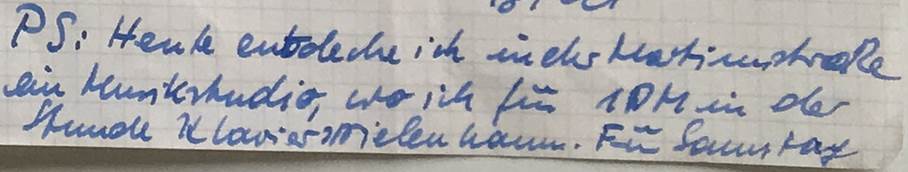 PS: Heute entdecke ich in der Martinstraße
ein Musikstudio, wo ich für 1 DM in der
Stunde Klavierspielen kann. Für Samstag